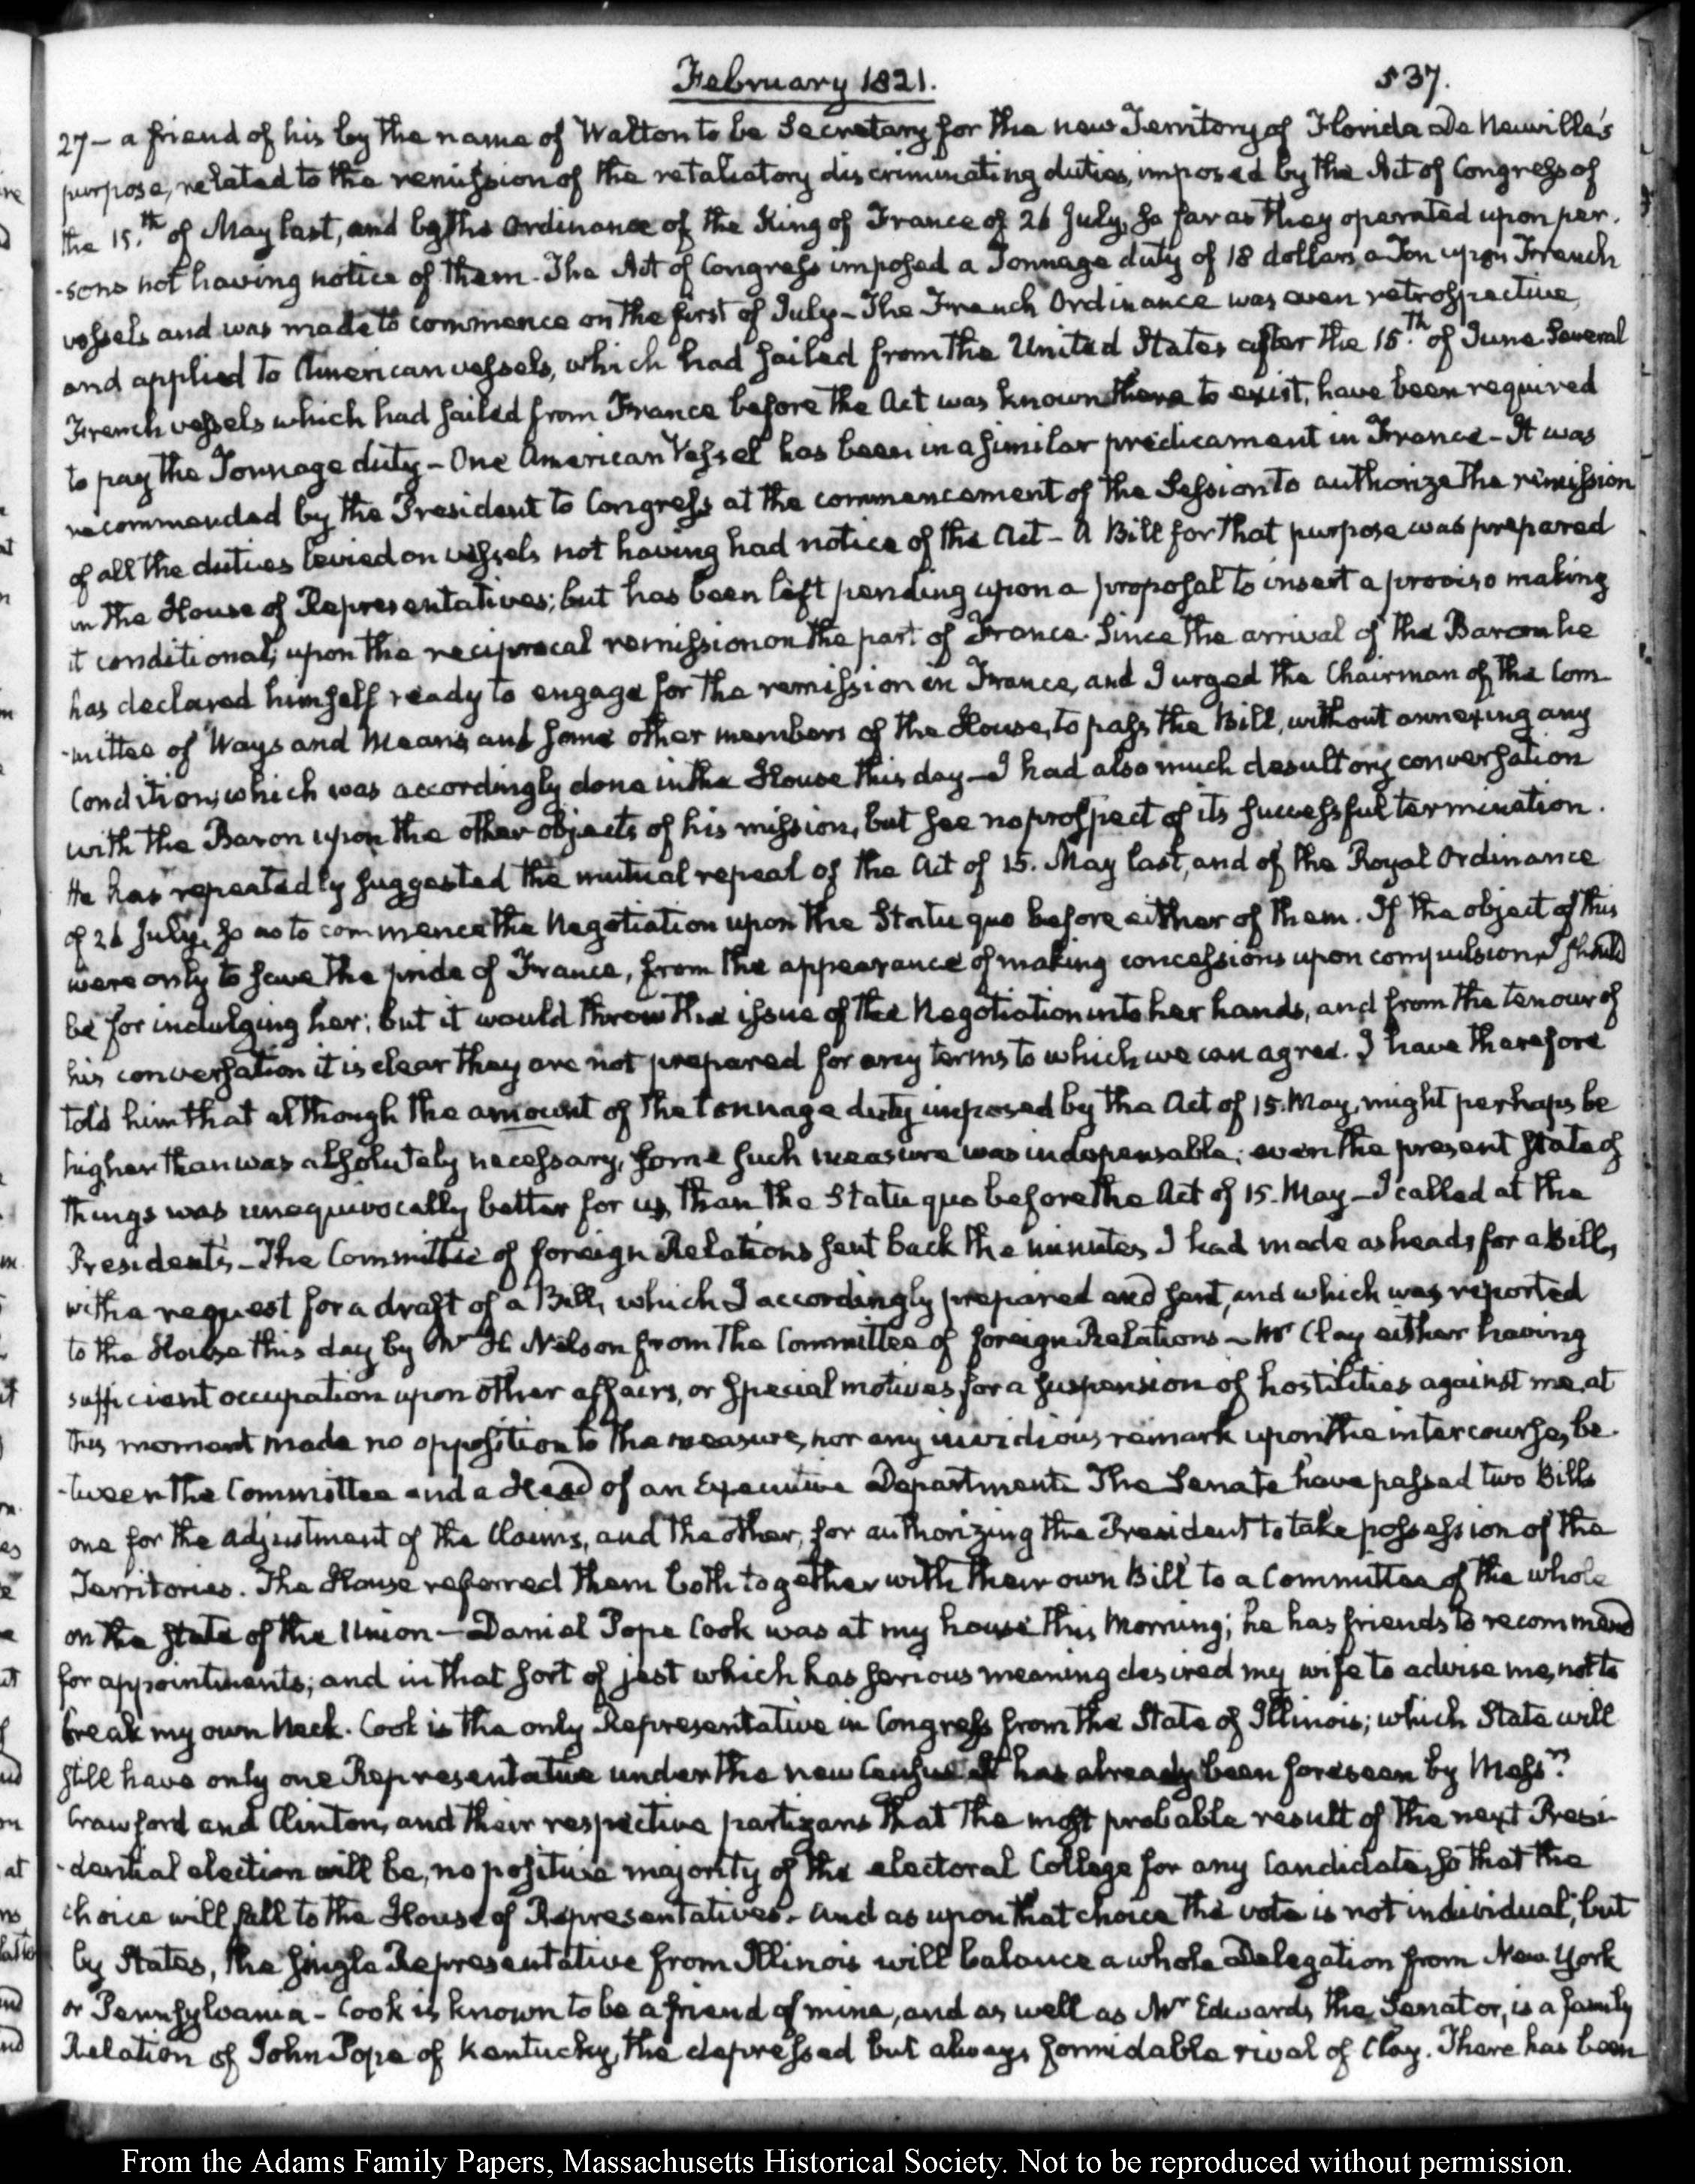 February 1821.
537.
27 — a friend of his by the name of Walton to be Secretary for the new Territory of Florida De Neuville's
purpose, related to the remission of the retaliatory discriminating duties, imposed by the Act of Congress of
the 15.th of May last, and by the Ordinance of the King of France of 26 July, so far as they operated upon per-
-sons not having notice of them. The Act of Congress imposed a Tonnage duty of 18 dollars a Ton upon French
vessels and was made to commence on the first of July — The French Ordinance was even retrospective,
and applied to American vessels, which had sailed from the United States after the 15.th of June. Several
French vessels which had sailed from France before the Act was known there to exist, have been required
to pay the Tonnage duty — One American Vessel has been in a similar predicament in France — It was
recommended by the President to Congress at the commencement of the Session to authorize the remission
of all the duties levied on vessels not having had notice of the Act — A Bill for that purpose was prepared
in the House of Representatives; but has been left pending upon a proposal to insert a proviso making
it conditional, upon the reciprocal remission on the part of France. Since the arrival of the Baron he
has declared himself ready to engage for the remission in France, and I urged the Chairman of the Com-
-mittee of Ways and Means, and some other members of the House, to pass the Bill, without annexing any
Condition, which was accordingly done in the House this day — I had also much desultory conversation
with the Baron upon the other objects of his mission, but see no prospect of its successful termination.
He has repeatedly suggested the mutual repeal of the Act of 15. May last, and of the Royal Ordinance
of 26 July, so as to commence the Negotiation upon the Statu quo before either of them. If the object of this
were only to save the pride of France, from the appearance of making concessions upon compulsion, I should
be for indulging her; but it would throw the issue of the Negotiation into her hands, and from the tenour of
his conversation it is clear they are not prepared for any terms to which we can agree. I have therefore
told him that although the amount of the tonnage duty imposed by the Act of 15. May, might perhaps be
higher than was absolutely necessary, some such measure was indispensable; even the present state of
things was unequivocally better for us, than the Statu quo before the Act of 15. May — I called at the
President's — The Committee of foreign Relations sent back the minutes I had made as heads for a Bill,
with a request for a draft of a Bill, which I accordingly prepared and sent, and which was reported
to the House this day by Mr H. Nelson from the Committee of foreign Relations — Mr Clay either having
sufficient occupation upon other affairs, or special motives for a suspension of hostilities against me, at
this moment made no opposition to the measure, nor any invidious remark upon the intercourse, be-
-tween the Committee and a Head of an Executive Department. The Senate have passed two Bills
one for the adjustment of the Claims, and the other, for authorizing the President to take possession of the
Territories. The House referred them both together with their own Bill to a Committee of the whole
on the state of the Union — Daniel Pope Cook was at my house this Morning; he has friends to recommend
for appointments; and in that sort of jest which has serious meaning desired my wife to advise me, not to
break my own Neck. Cook is the only Representative in Congress from the State of Illinois; which State will
still have only one Representative under the new Census. It has already been foreseen by Mess.rs
Crawford and Clinton, and their respective partizans that the most probable result of the next Presi-
-dential election will be, no positive majority of the electoral College for any Candidate, so that the
choice will fall to the House of Representatives. And as upon that choice the vote is not individual, but
by States, the single Representative from Illinois will balance a whole Delegation from New York
or Pennsylvania — Cook is known to be a friend of mine, and as well as Mr Edwards, the Senator, is a family
Relation of John Pope of Kentucky, the depressed but always formidable rival of Clay. There has been
From the Adams Family Papers, Massachusetts Historical Society. Not to be reproduced without permission.